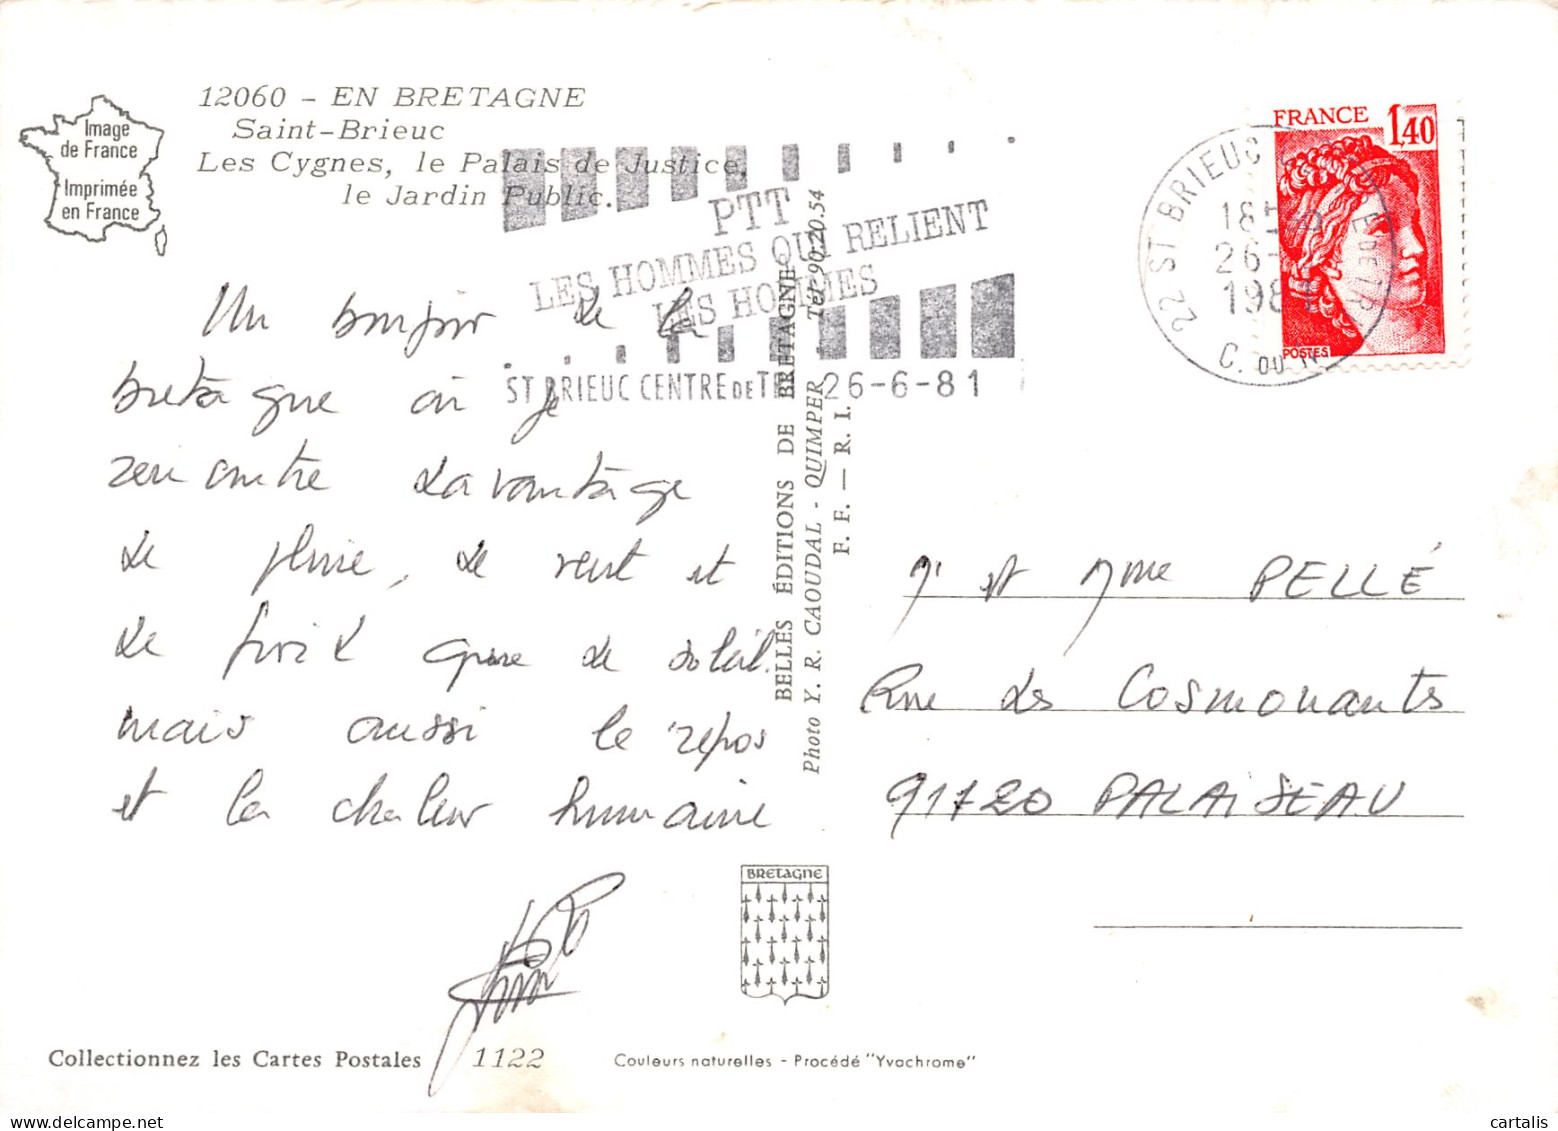 Image
de France
Imprimée
en France
12060 - EN BRETAGNE
Saint-Brieuc
Les Cygnes, le Palais de Justice,
le Jardin Public.
PTT
LES HOMMES QUI RELIENT
LES HOMMES
ST BRIEUC CENTRE DE TRI 26-6-81
22 ST BRIEUC CENTRE DE TRI
18H
26-6
1981
C. DU N.
FRANCE 1,40
POSTES
Un bonjour de la
bretagne où je
rencontre davantage
de pluie, de vent et
de froid que de soleil.
mais aussi le repos
et la chaleur humaine
BELLES ÉDITIONS DE BRETAGNE
Photo Y. R. CAOUDAL - QUIMPER Tél 90.20.54
F. F. — R. I.
Mr et Mme PELLÉ
Rue des Cosmonauts
91120 PALAISEAU
BRETAGNE
Collectionnez les Cartes Postales 1122
Couleurs naturelles - Procédé "Yvachrome"
cartalis